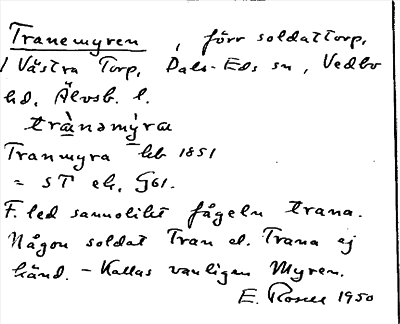 Tranemyren, förr soldattorp,
/ Västra Torp, Dals-Eds sn, Vedbo
hd, Älvsb. l.
trànəmýra
Tranmyra hb 1851
= ST ek, G61.
F. led sannolikt fågeln trana.
Någon soldat Tran el. Trana ej
känd. - Kallas vanligen Myren.
E. Rosell 1950